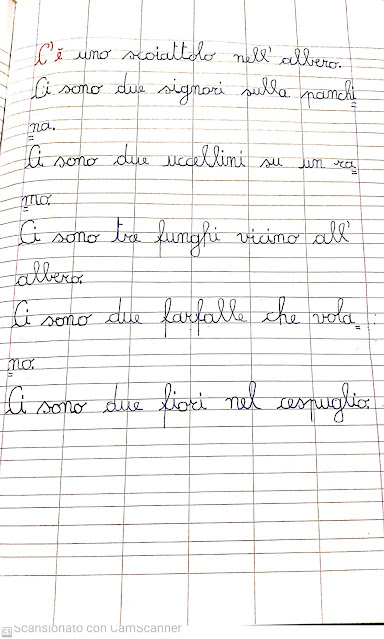 C'è uno scoiattolo nell'albero.
Ci sono due signori sulla panchi
na.
Ci sono due uccellini su un ra
mo.
Ci sono tre funghi vicino all'
albero.
Ci sono due farfalle che vola
no.
Ci sono due fiori nel cespuglio.
CS Scansionato con CamScanner